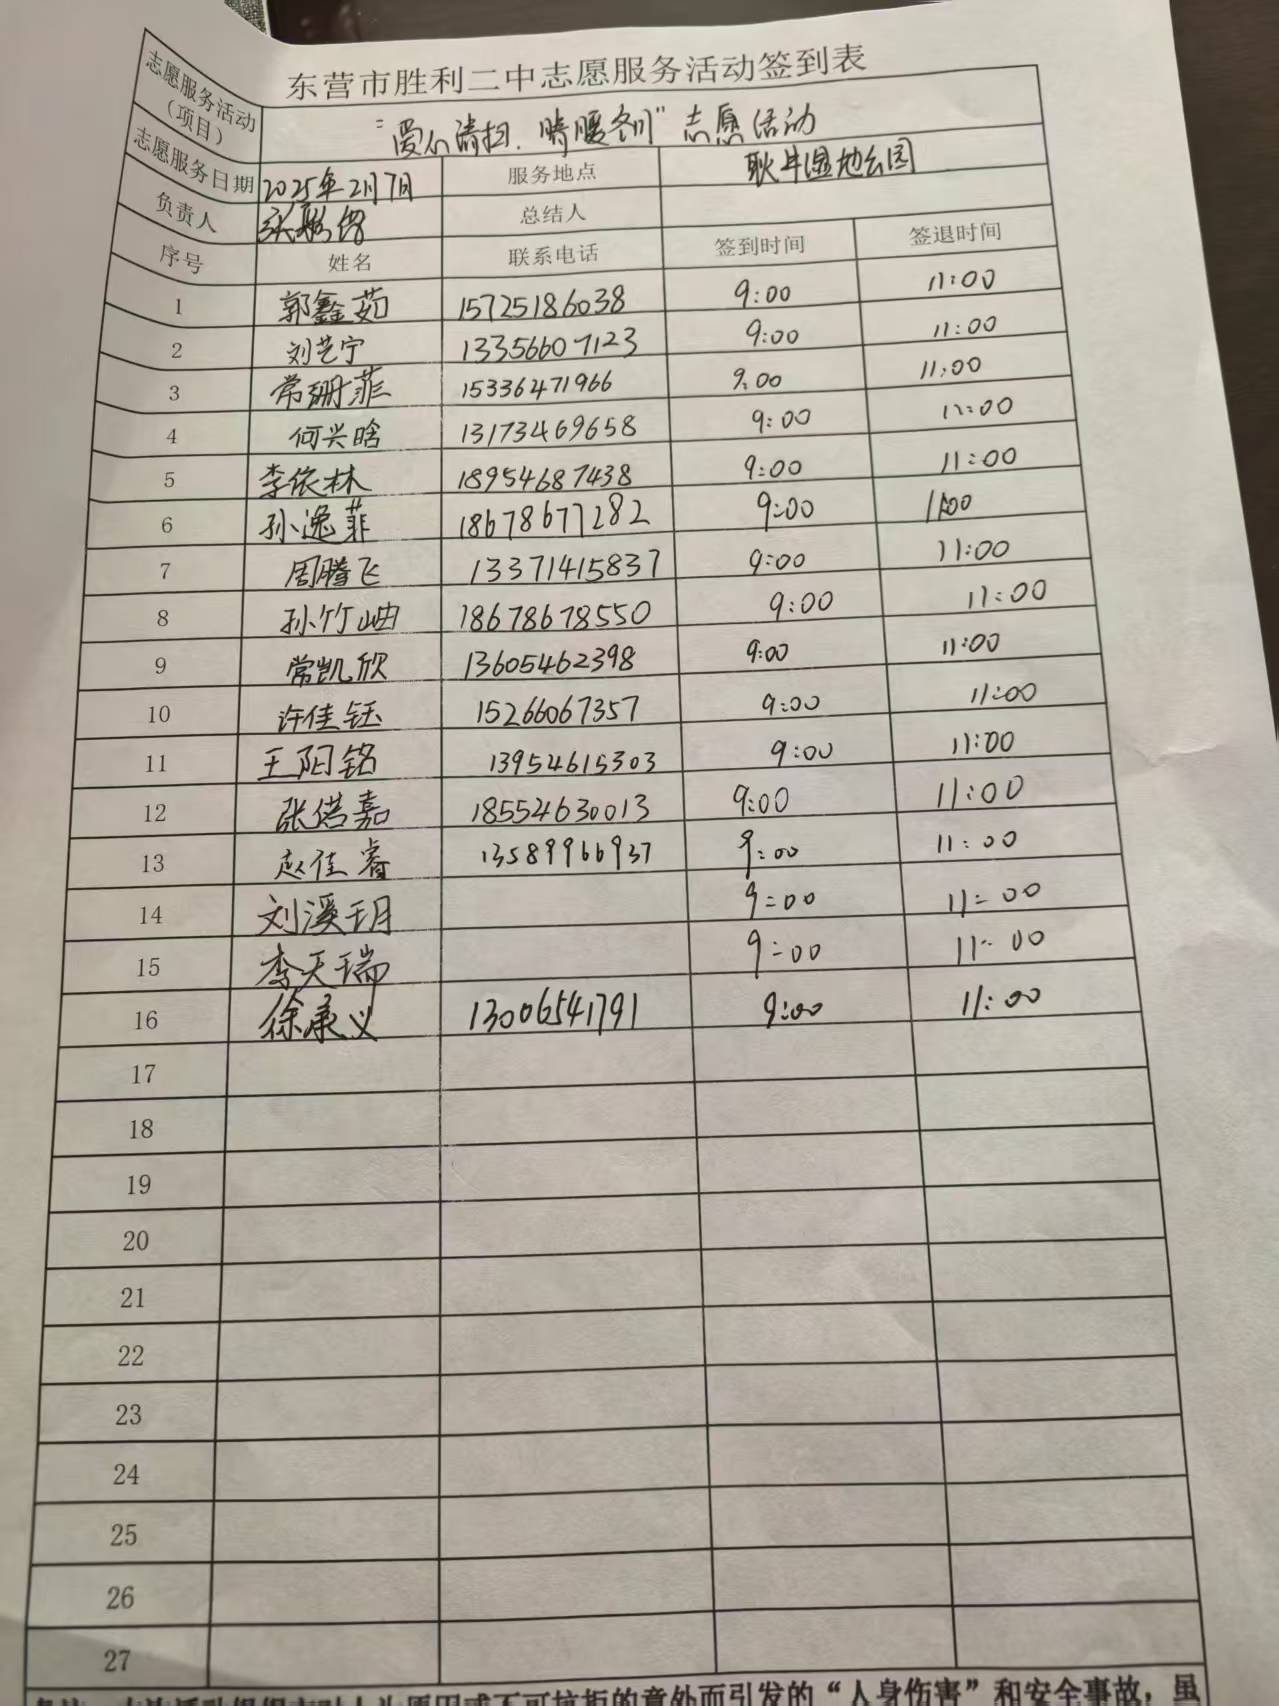 东营市胜利二中志愿服务活动签到表
志愿服务活动（项目） “爱心清扫，情暖冬川”志愿活动
志愿服务日期 2025年2月7日 服务地点 耿井湿地公园
负责人 总结人
序号 姓名 联系电话 签到时间 签退时间
1 郭鑫茹 15725186038 9:00 11:00
2 刘艺宁 13356607123 9:00 11:00
3 常珊菲 15336471966 9:00 11:00
4 何兴晗 13173469658 9:00 11:00
5 李依林 18954687438 9:00 11:00
6 孙逸菲 18678677282 9:00 11:00
7 周腾飞 13371415837 9:00 11:00
8 孙竹岫 18678678550 9:00 11:00
9 常凯欣 13605462398 9:00 11:00
10 许佳钰 15266067357 9:00 11:00
11 王阳铭 13954615303 9:00 11:00
12 张偌嘉 18554630013 9:00 11:00
13 赵佳睿 13589966937 9:00 11:00
14 刘溪玥 9:00 11:00
15 李天瑞 9:00 11:00
16 徐承义 13006541791 9:00 11:00
17
18
19
20
21
22
23
24
25
26
27
意外而引发的“人身伤害”和安全事故，虽